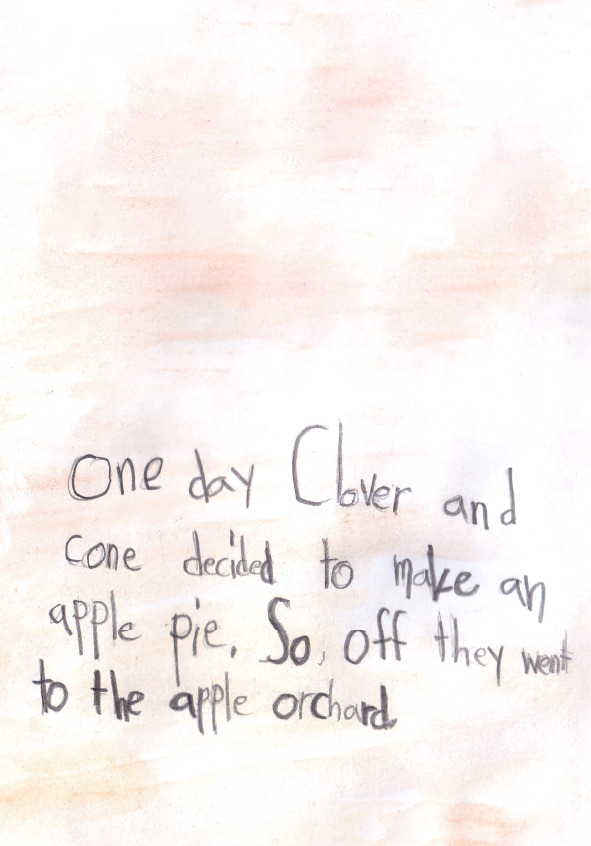 One day Clover and
Cone decided to make an
apple pie. So, off they went
to the apple orchard.